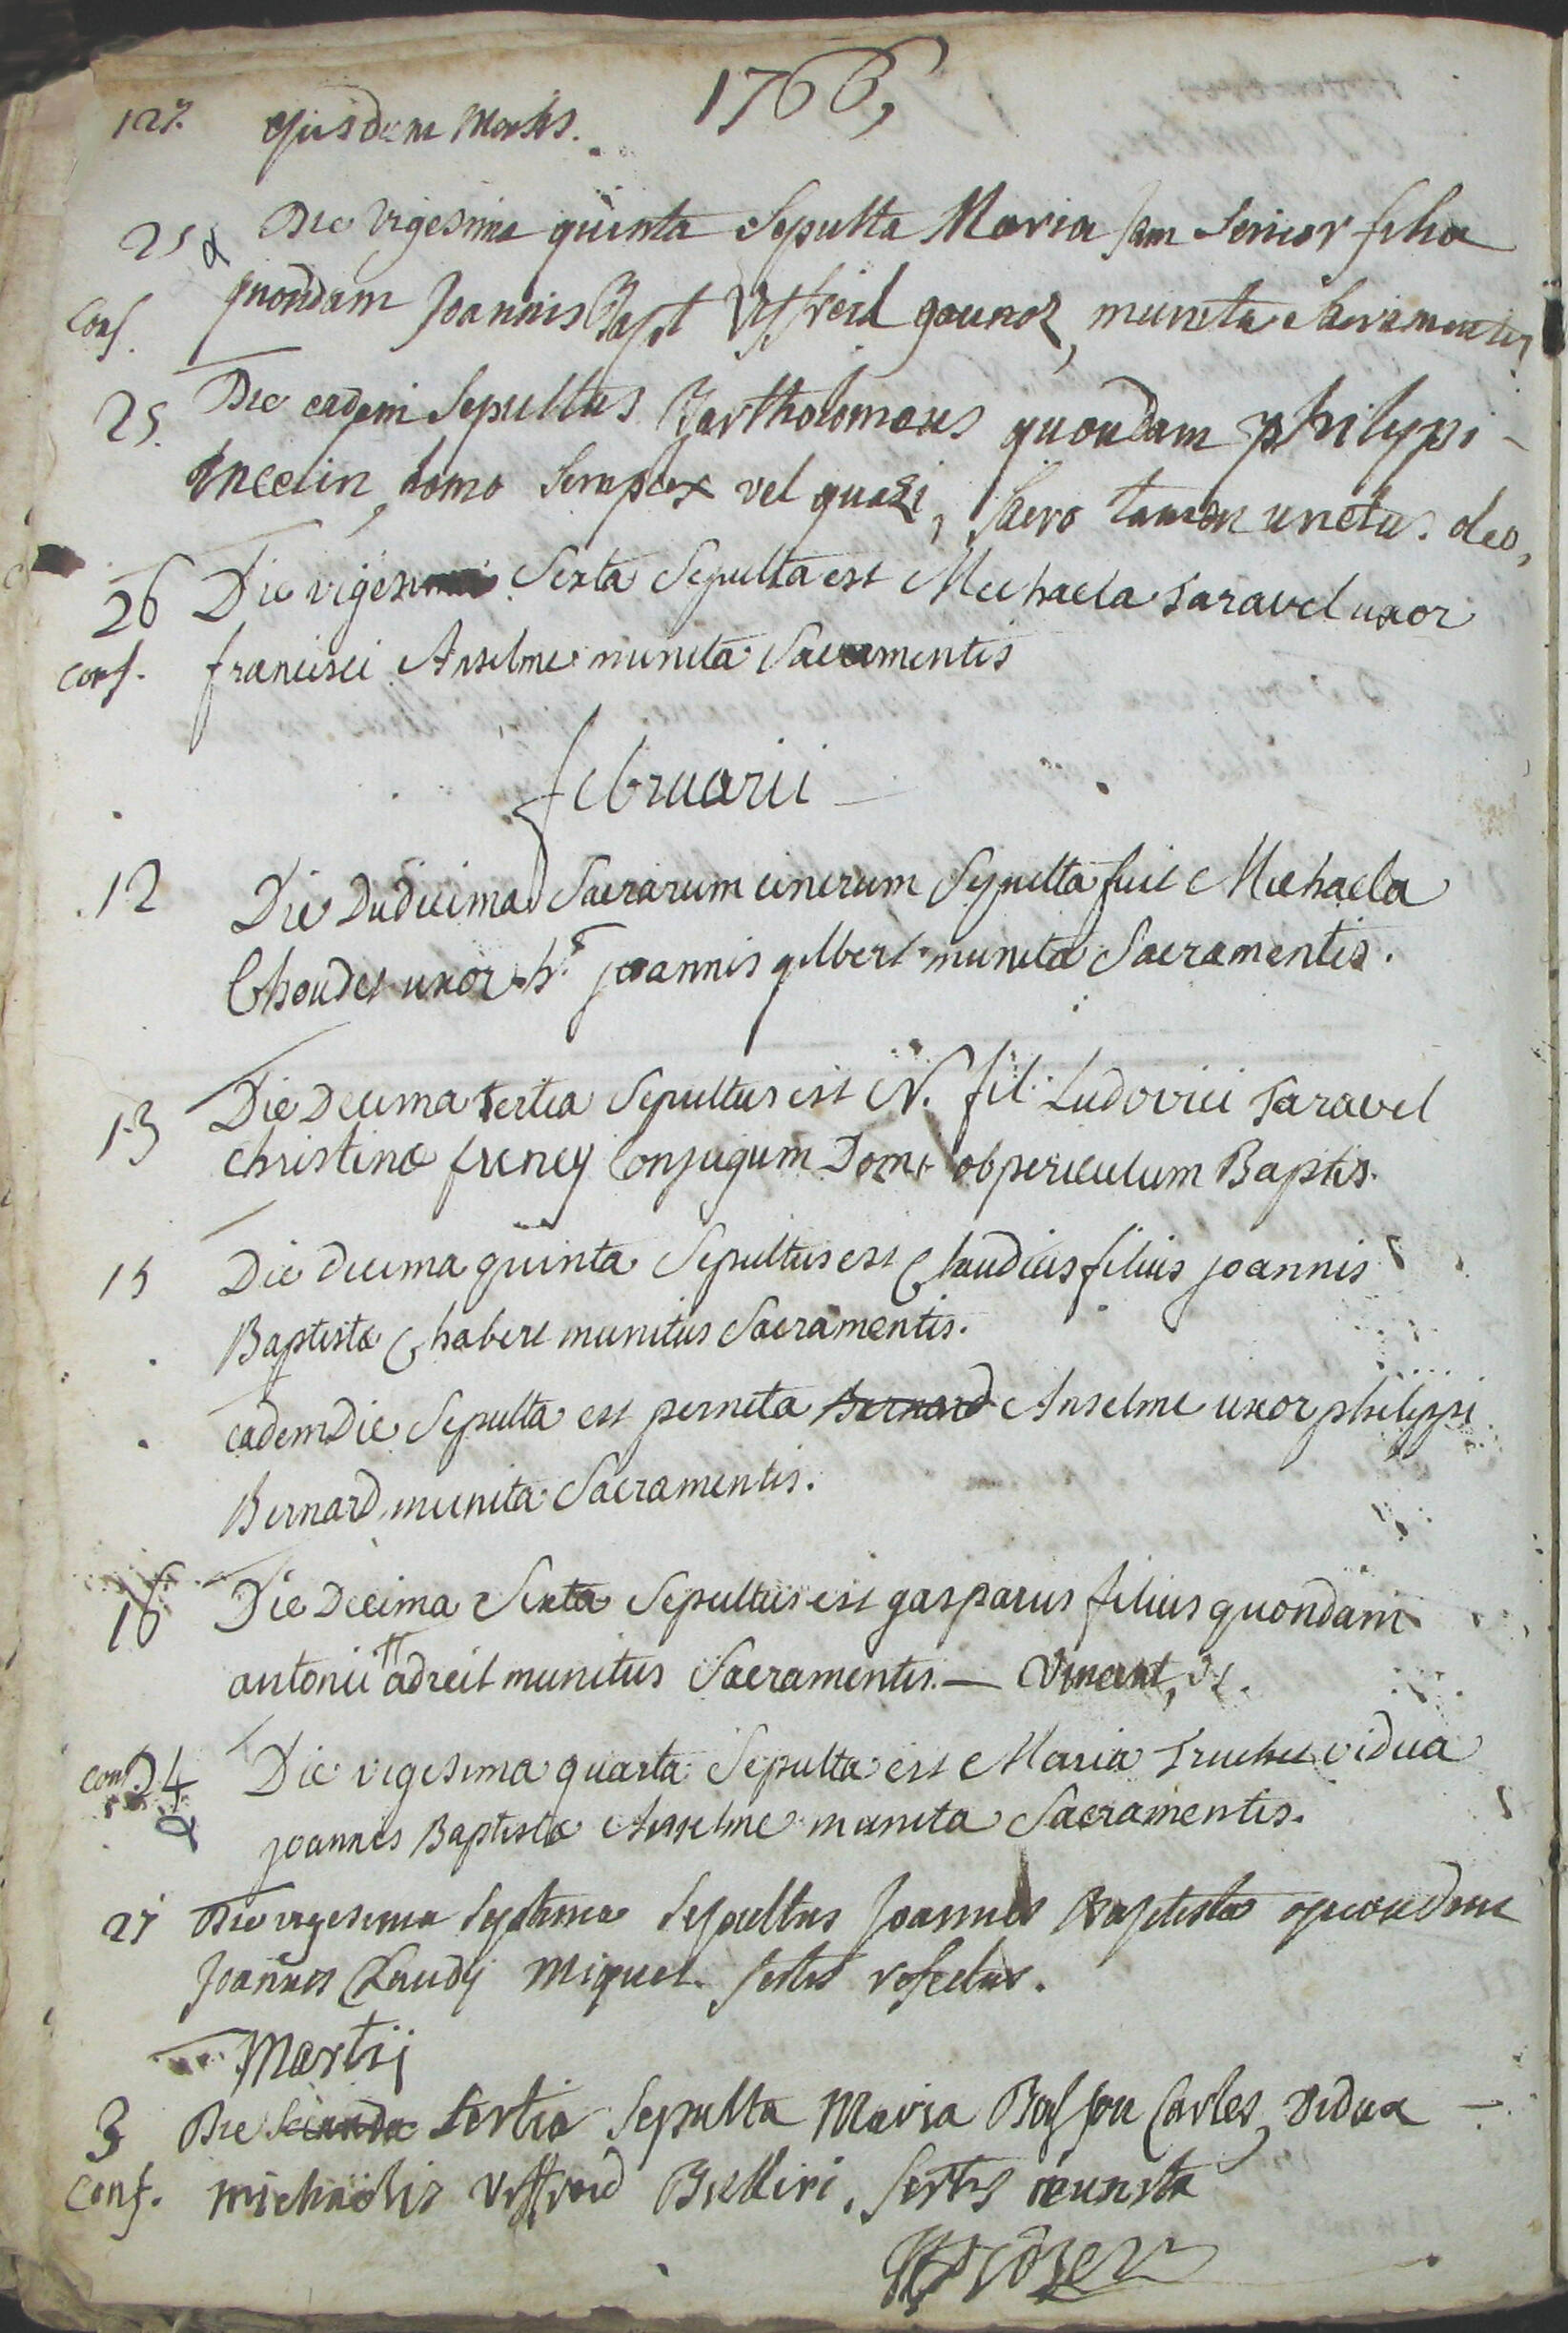 1766,
127. ejusdem Mensis.
25 Die vigesima quinta Sepulta Maria jam Senior filia
Conf. quondam Joannis Bapt Uffreid gounos, munita Sacramentis
25. Die eadem Sepultus Bartholomaeus quondam philippi -
Ancelin, homo Simplex vel quasi, Sacro tamen unctus oleo,
26 Die vigesima Sexta Sepulta est Michaela Taravel uxor
Conf. francisci Anselme munita Sacramentis
februarii
12 Die Dudecima Sacrarum cinerum Sepulta fuit Michaela
Choudet uxor hr. joannis gilbert munita Sacramentis.
13 Die Decima tertia Sepultus est N. fil. Ludovici Taravel
christinae freney Conjugum Domi ob periculum Baptis.
15 Die decima quinta Sepultus est Claudius filius joannis
Baptistae Chabert munitus Sacramentis.
eadem Die Sepulta est perneta Bernard Anselme uxor philippi
Bernard munita Sacramentis.
16 Die Decima Sexta Sepultus est gasparus filius quondam
antonii adreit munitus Sacramentis. — Vincent,
Conf. 24 Die vigesima quarta Sepulta est Maria Truchet vidua
joannis Baptistae Anselme munita Sacramentis.
27 Die vigesima Septima Sepultus Joannes Baptista quondam
Joannis Claudij Miquet. Sctis refectus.
Martij
3 Die Secunda tertia Sepulta Maria Carles, vidua -
Conf. Michaelis Uffreid Sctis munita